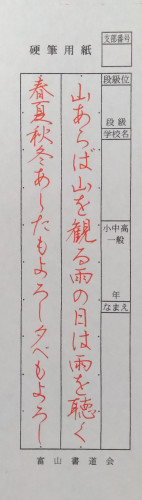 硬筆用紙
支部番号
段級位
段級
学校名
小中高
一般
年
なまえ
山あらば山を観る雨の日は雨を聴く
春夏秋冬あしたもよろし夕べもよろし
富山書道会